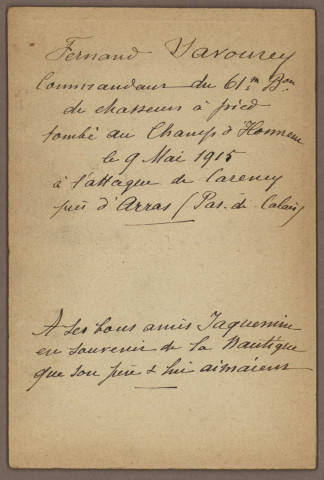 Fernand Savourey
Commandant du 61m Bon
de chasseurs à pied
tombé au Champ d'Honneur
le 9 Mai 1915
à l'attaque de Carency
près d'Arras (Pas-de-Calais)
A ses bons amis Jaquemin
en souvenir de la Nautique
que son père & lui aimaient